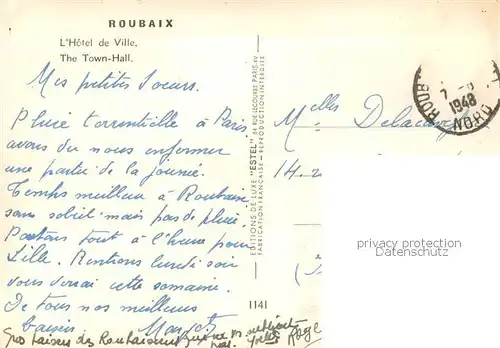 ROUBAIX
L'Hôtel de Ville.
The Town-Hall.
Mes petites Soeurs.
Pluie torrentielle à Paris
avons du nous enfermer
une partie de la journée.
Temps meilleur à Roubaix
sans soleil mais pas de pluie
Partons tout à l'heure pour
Lille. Rentrons lundi soir
vous verrai cette semaine.
De tous nos meilleurs
baisers Margot
Gros baisers des Roubaisiens
EDITIONS DE LUXE "ESTEL" RUE LECOURBE PARIS-XV
FABRICATION FRANÇAISE - REPRODUCTION INTERDITE
1141
ROUB
7
1948
NORD
Melles
14
privacy protection
Datenschutz